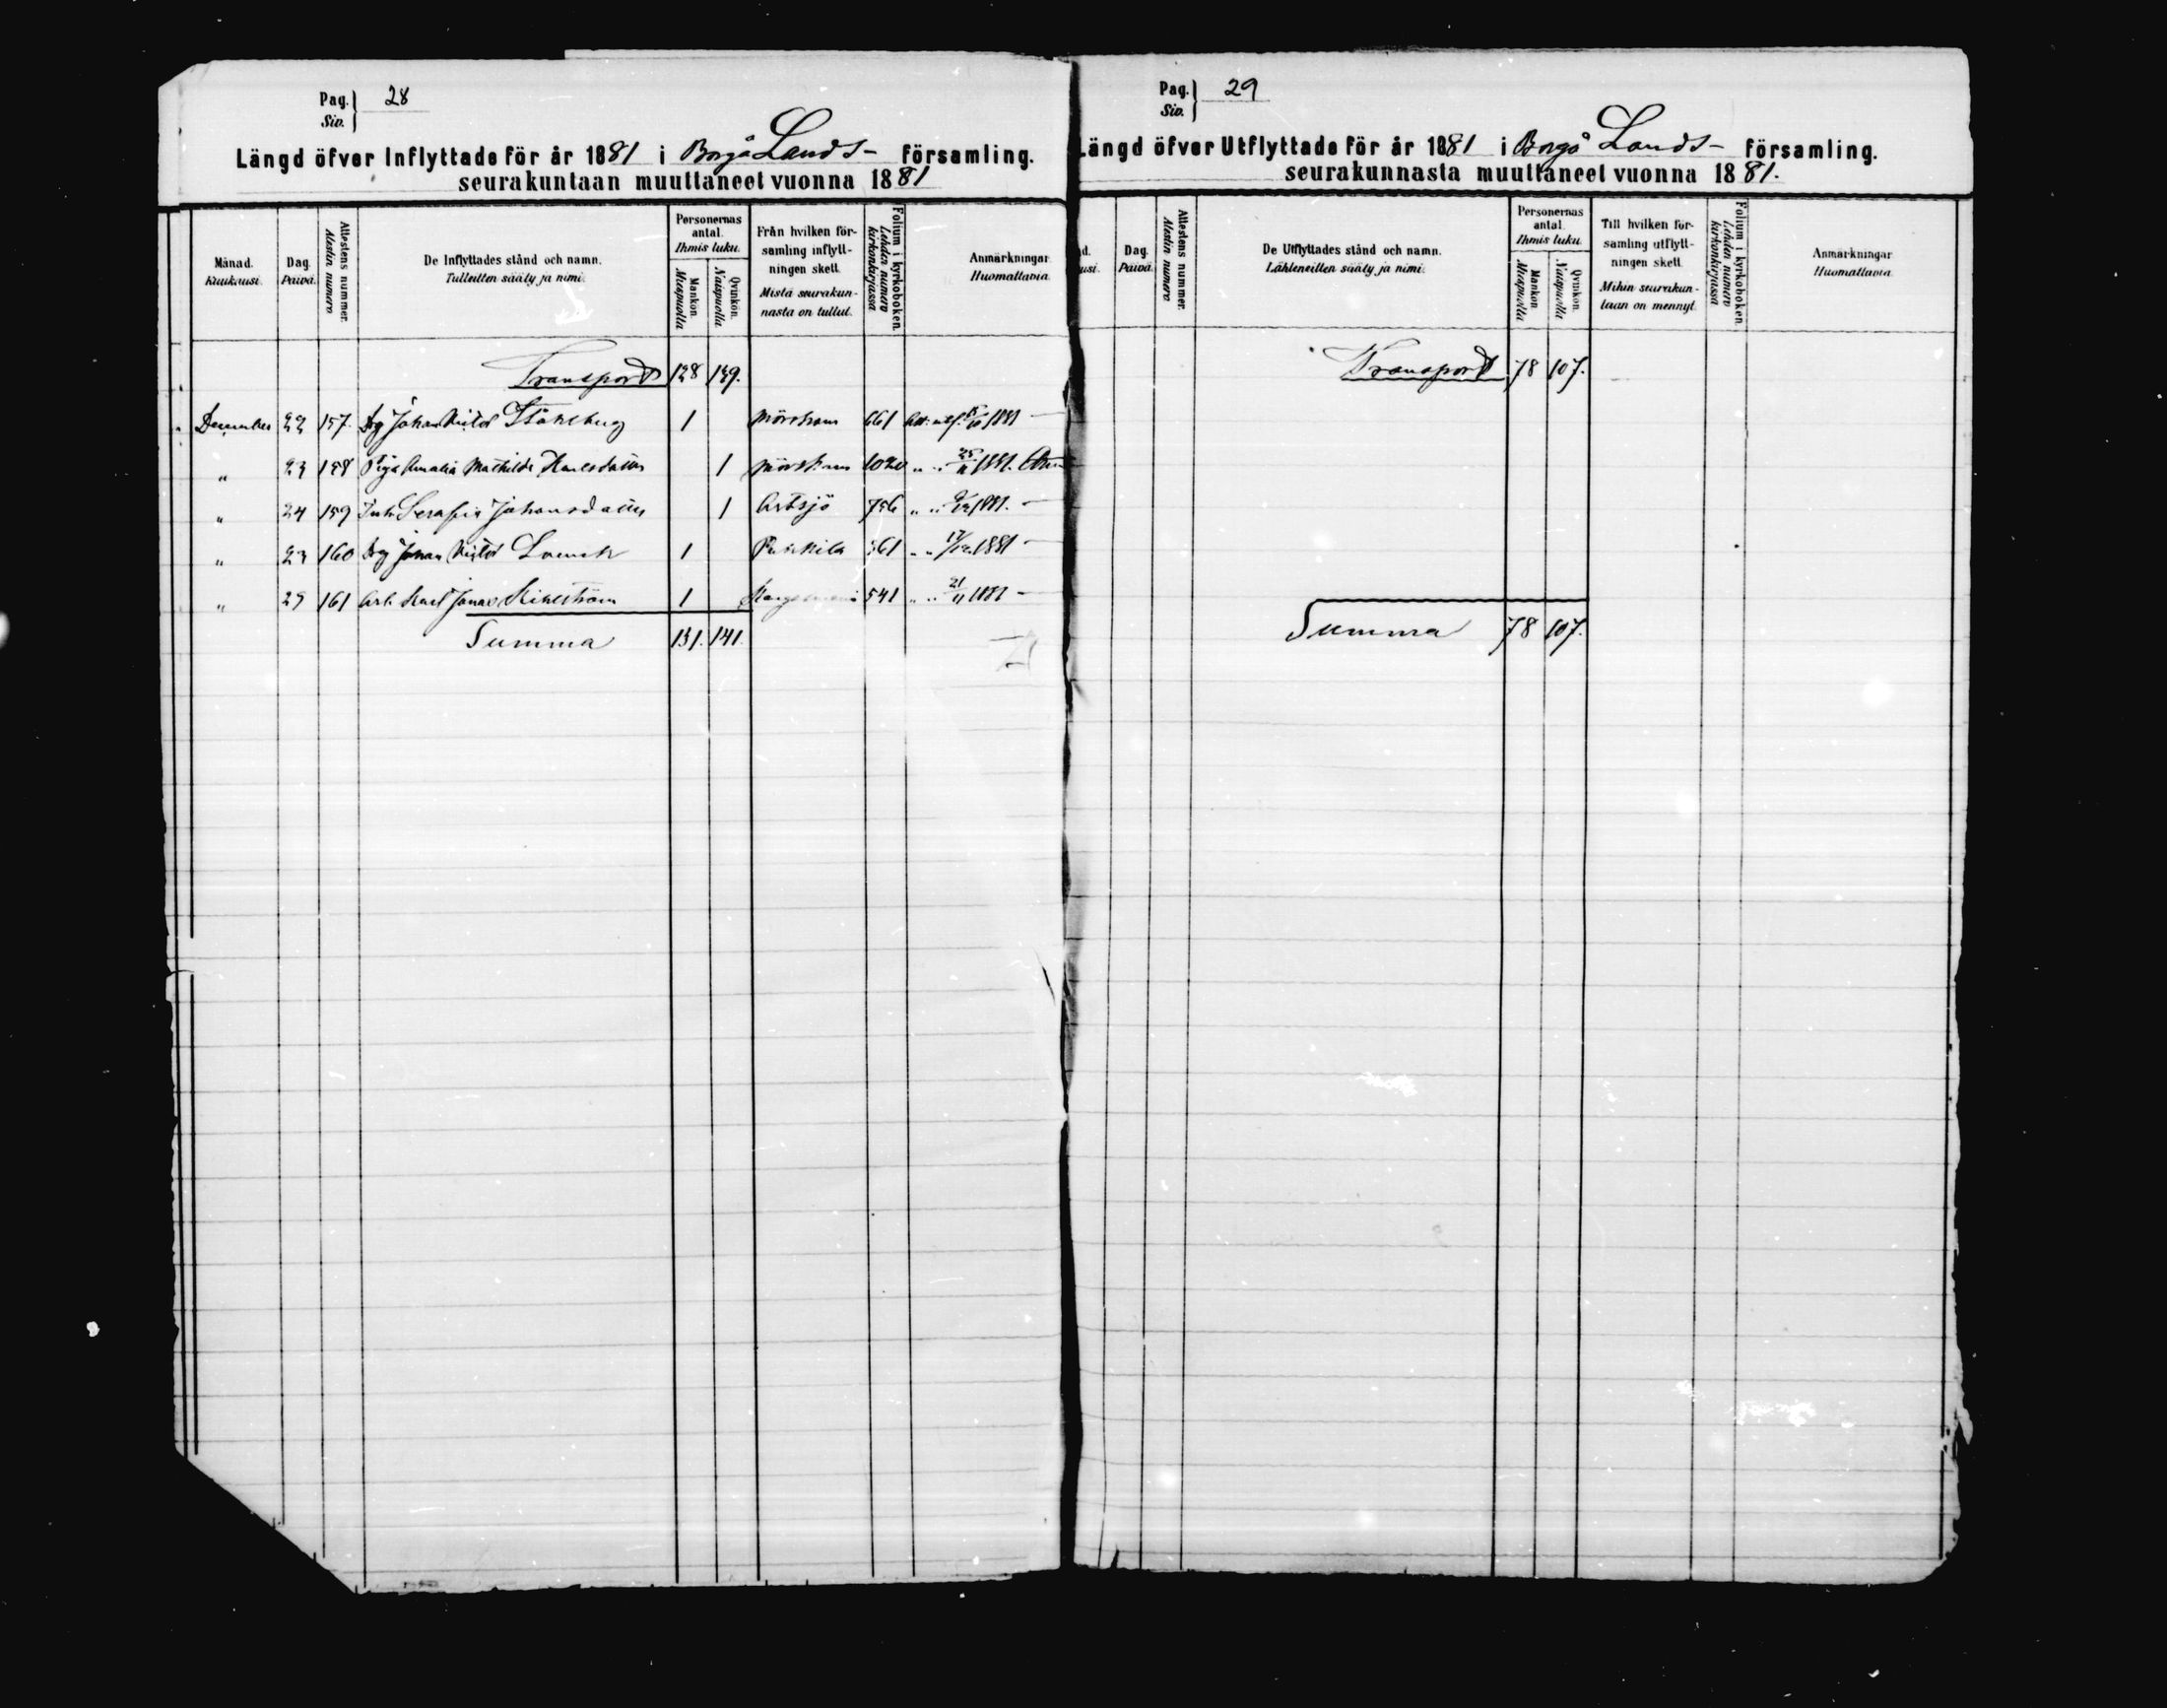 Pag. 28
Siv.
Längd öfver Inflyttade för år 1881 i Borgå Lands- församling.
seurakuntaan muuttaneet vuonna 1881
Månad. Kuukausi. Dag. Päivä. Attestens nummer. Atestin numero De Inflyttades stånd och namn. Tulleitten sääty ja nimi. Personernas antal. Ihmis luku. Mankön. Miespuolia Qvinkön. Naispuolia Från hvilken församling inflyttningen skett. Mistä seurakunnasta on tullut. Folium i kyrkoboken. Lehden numero kirkonkirjassa Anmärkningar Huomattavia
Transport 128 139.
December 22 157. Drg Johan Viktor Ståhlberg 1 Mörskom 661 Att. utf. 1881
" 23 158 Piga Amalia Mathilda Karlsdotter 1 Mörskom 1020 " " 25/11 1881.
" 24 159 Inh. Serafia Johansdotter 1 Artsjö 756 " " 1881.
" 23 160 Drg Johan Viktor 1 Pukkila 361 " " 17/12 1881
" 29 161 Arb. Karl Jonas 1 541 " " 21/11 1881
Summa 131. 141.
Pag. 29
Siv.
Längd öfver Utflyttade för år 1881 i Borgå Lands- församling.
seurakunnasta muuttaneet vuonna 1881.
Dag. Päivä. Attestens nummer. Atestin numero De Utflyttades stånd och namn. Lähteneitten sääty ja nimi. Personernas antal. Ihmis luku. Mankön Miespuolia Qvinkön. Naispuolia Till hvilken församling utflyttningen skett. Mihin seurakuntaan on mennyt. Folium i kyrkoboken. Lehden numero kirkonkirjassa Anmärkningar Huomattavia
Transport 78 107.
Summa 78 107.